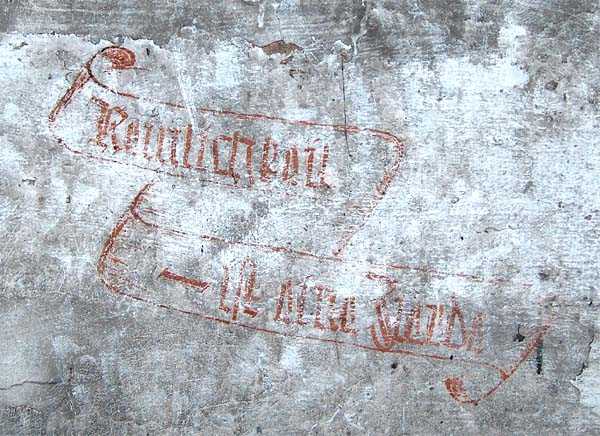 Reinlichkeit
– ist eine Zierde